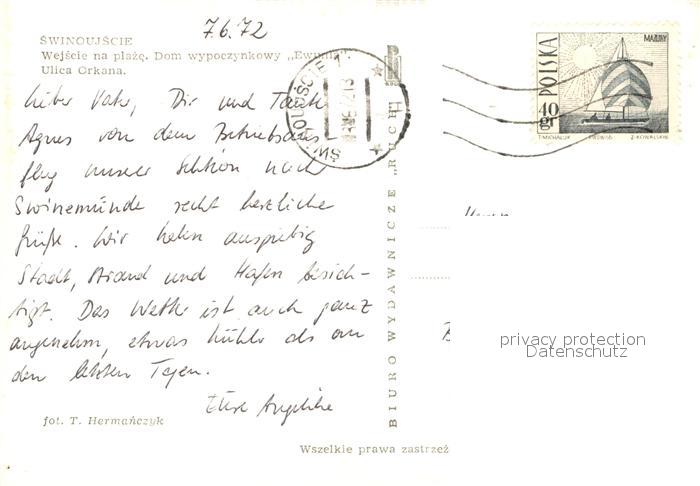 7.6.72
ŚWINOUJŚCIE
Wejście na plażę. Dom wypoczynkowy „Ewunia"
Ulica Orkana.
Lieber Vater, Dir und Tante
Agnes von dem Betriebsaus-
flug unserer Sektion nach
Swinemünde recht herzliche
Grüße. Wir haben ausgiebig
Stadt, Strand und Hafen besich-
tigt. Das Wetter ist auch ganz
angenehm, etwas kühler als an
den letzten Tagen.
Eure Angelika
fot. T. Hermańczyk
Wszelkie prawa zastrzeż
BIURO WYDAWNICZE „RUCH"
ŚWINOUJŚCIE 1
POLSKA
MAZURY
40 gr
T. MICHALUK
PWPW-66
Z. KOWALSKI
privacy protection
Datenschutz